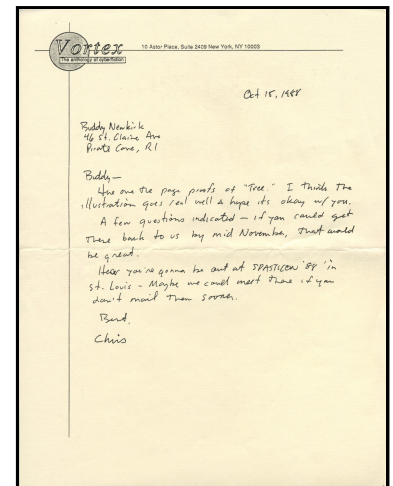 Vortex
The anthology of cyberfiction
10 Astor Place, Suite 2409 New York, NY 10003
Oct 15, 1988
Buddy Newkirk
46 St. Claire Ave
Pirate Cove, RI
Buddy—
Here are the page proofs of "Tree." I think the
illustration goes real well & hope its okay w/ you.
A few questions indicated – if you could get
these back to us by mid November, that would
be great.
Hear you're gonna be out at SPASTICON '88 in
St. Louis – Maybe we could meet there if you
don't mail them sooner.
Best,
Chris